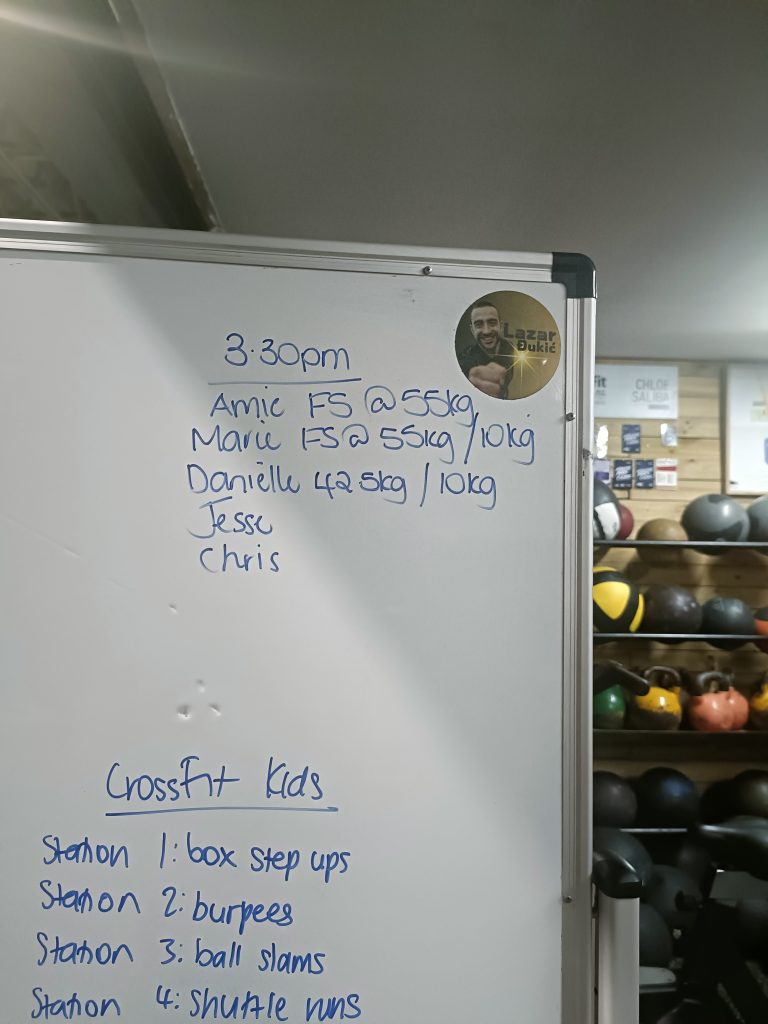 Lazar
Đukić
3.30pm
Amie FS @ 55kg
Marie FS @ 55kg / 10kg
Danielle 42.5kg / 10kg
Jesse
Chris
CrossFit Kids
Station 1: box step ups
Station 2: burpees
Station 3: ball slams
Station 4: shuttle runs
Fit
CHLOE
SALIBA